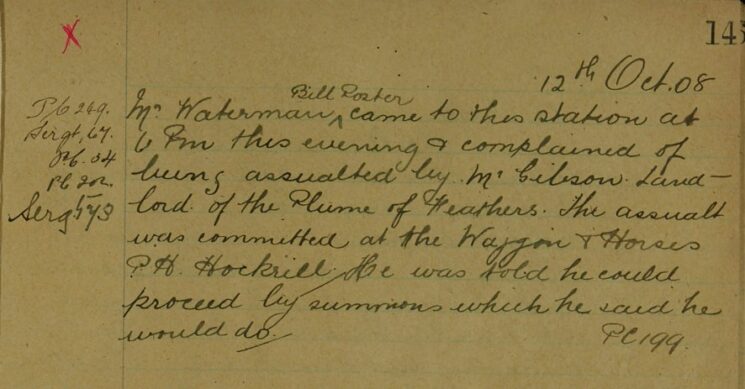 X
14
12th Oct. 08
PC 249.
Sergt, 67.
PC. 34
PC 202.
Sergt 173
Bill Poster
Mr Waterman ^ came to this station at
6 Pm this evening & complained of
being assualted by Mr Gibson. Land-
lord. of the Plume of Feathers. The assualt
was committed at the Waggon & Horses
P.H. Hockrill. He was told he could
proceed by summons which he said he
would do.
PC199.